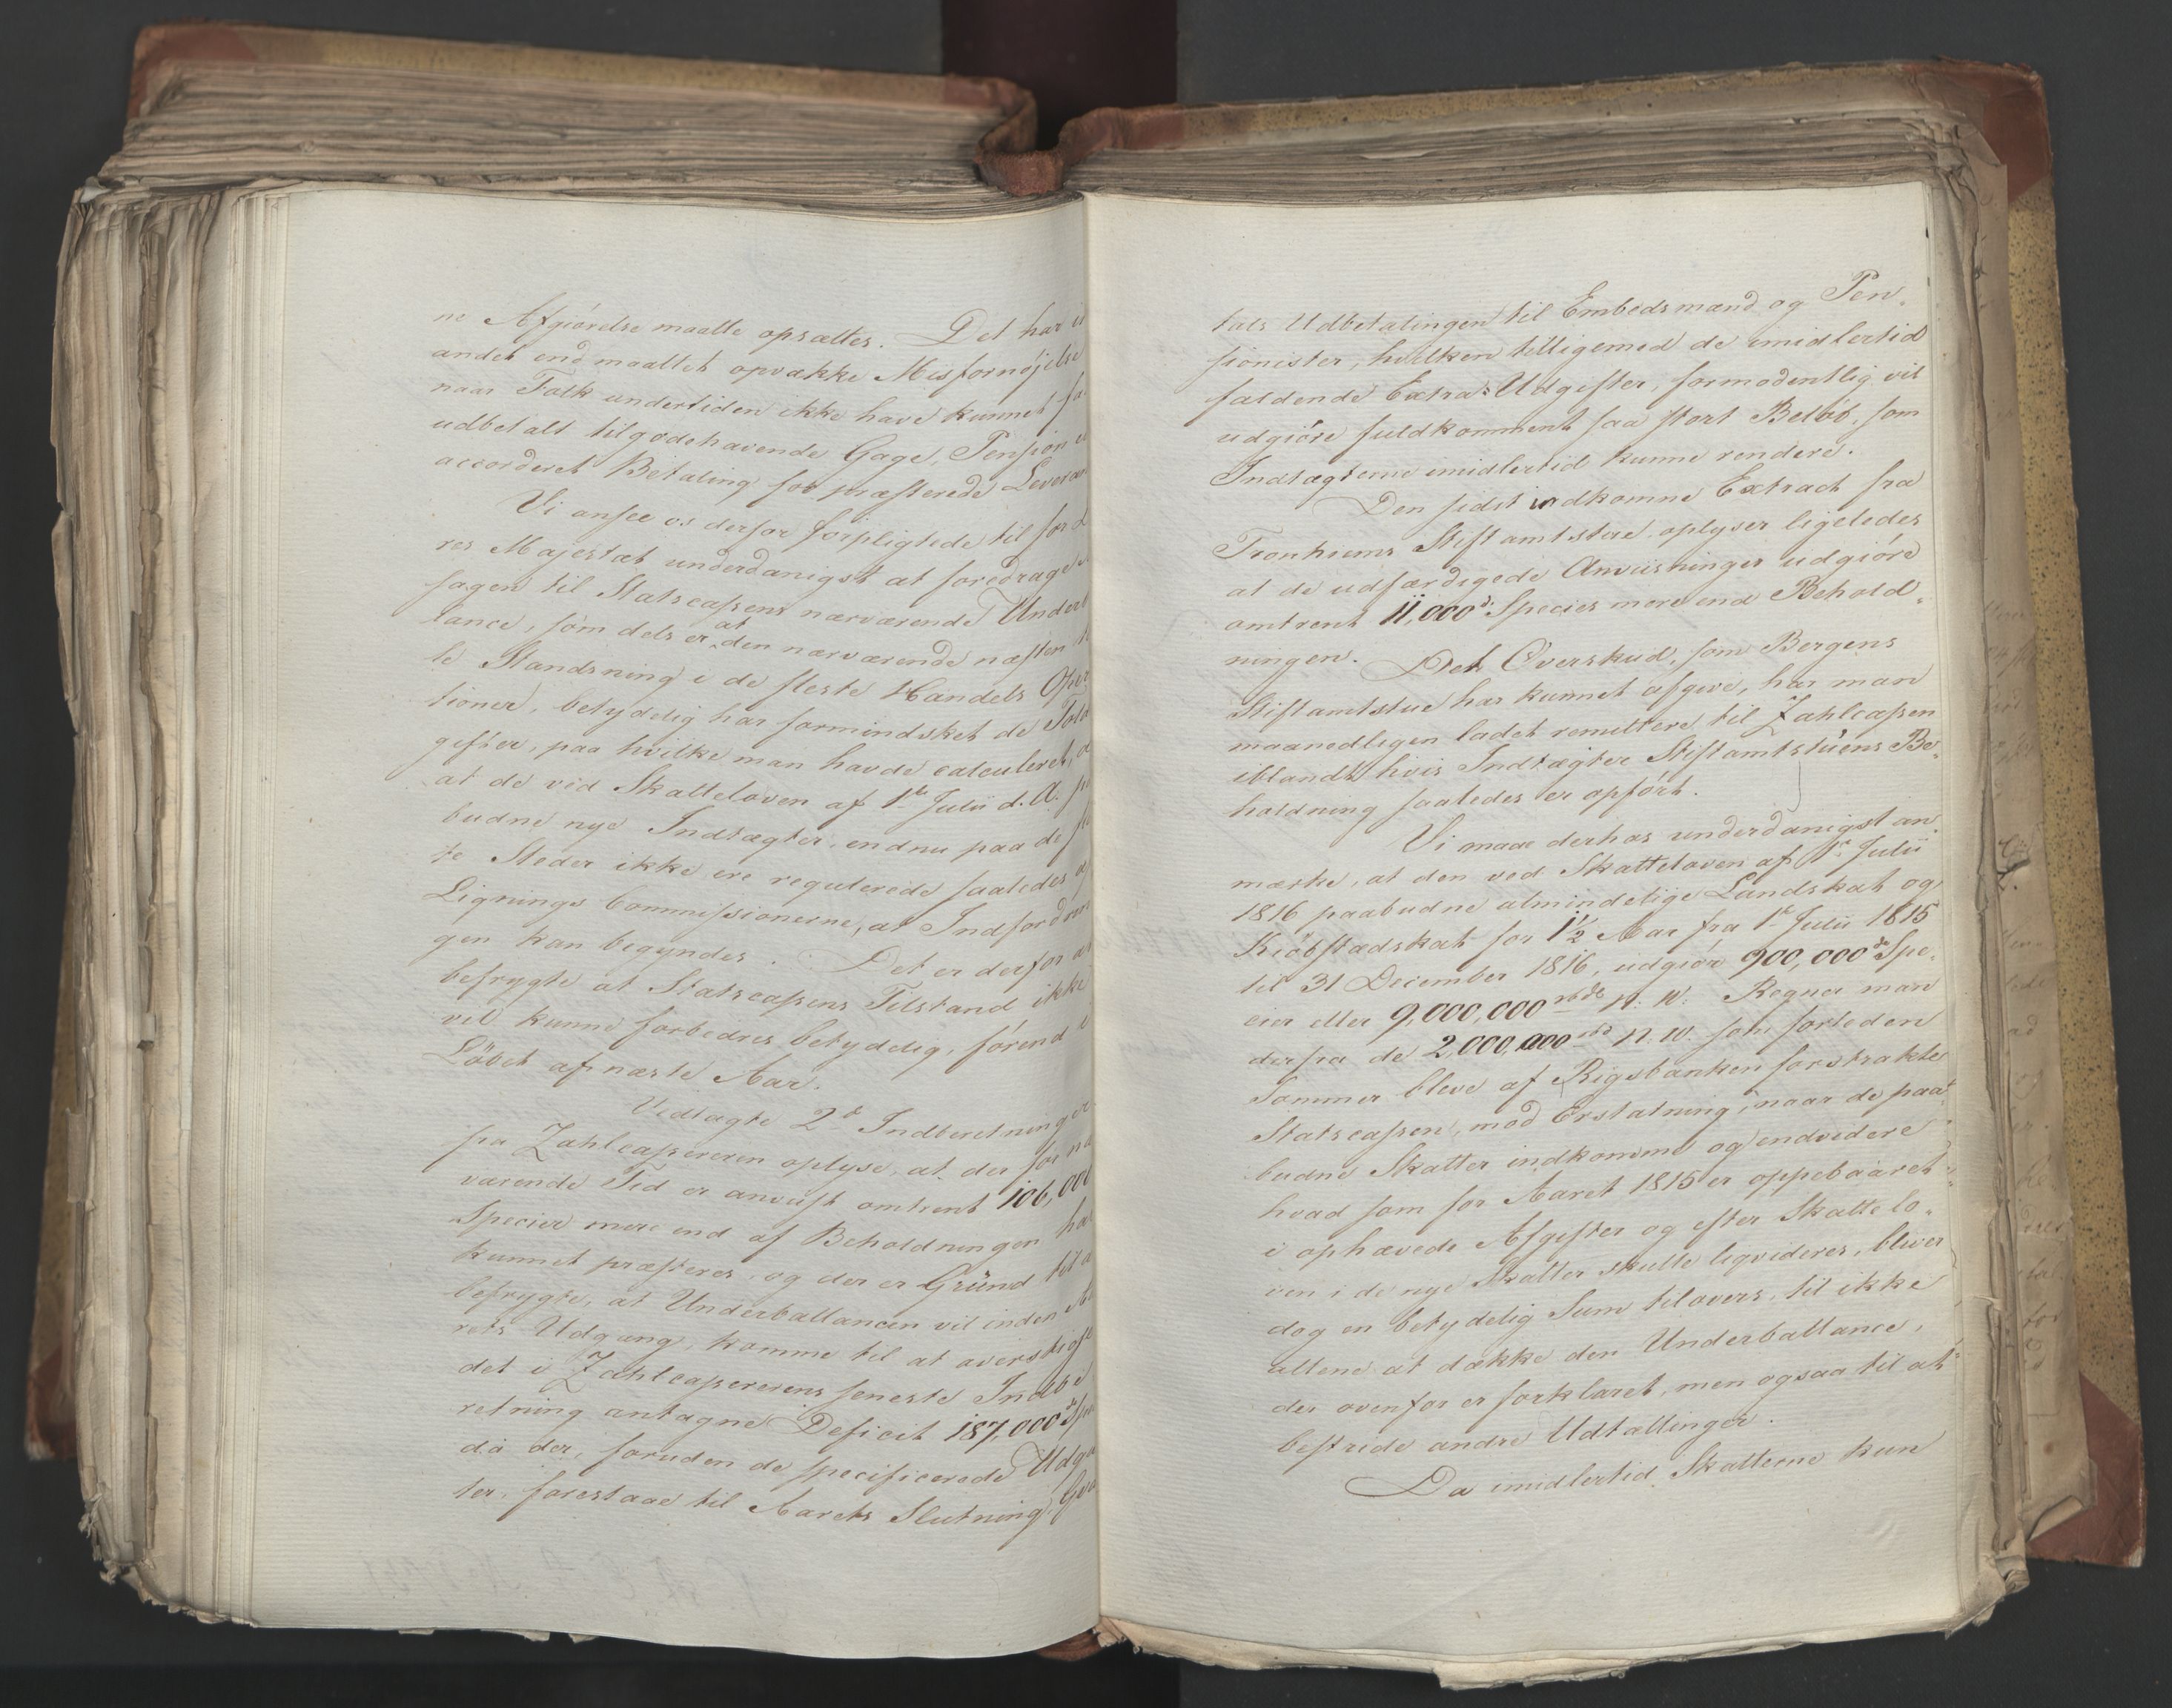 ne Afgiörelse maatte opsættes. Det har i
andet end maattet opvække Misfornöjelse
naar Folk undertiden ikke have kunnet fa
udbetalt tilgodehavende Gage, Pension e
accorderet Betaling for præsterede Leveran
Vi ansee os derfor forpligtede til for D
res Majestæt underdanigst at foredrage A
sagen til Statscassens nærværende Underb
lance, som dels er at den nærværende næsten to
le Standsning i de fleste Handels Oper
tioner, betydelig har formindsket de Told
gifter, paa hvilke man havde calculeret, d
at de ved Skatteloven af 1te Julii d. A. p
budne nye Indtægter, endnu paa de fle
te Steder ikke ere regulerede saaledes af
Lignings Commissionerne, at Indfordrin
gen kan begyndes. Det er derfor at
befrygte at Statscassens Tilstand ikke
vil kunne forbedres betydelig, förend i
Löbet af næste Aar.
Vedlagte 2de Indberetninger
fra Zahlcassereren oplyse, at der for nær
værende Tid er anviist omtrent 106,000
Species mere end af Beholdningen har
kunnet præsteres, og der er Grund til a
befrygte, at Underballancen vil inden Aa
rets Udgang, komme til at overstige
det i Zahlcassererens seneste Indbe
retning antagne Deficit 187,000 de Spe
da der, foruden de specificerede Udgi
ter, forestaae til Aarets Slutning, Qva
tals Udbetalingen til Embedsmænd og Pen-
sionister, hvilken tilligemed de imidlertid
faldende Extra-Udgifter, formodentlig vil
udgiöre fuldkomment saa stort Belöb, som
Indtægterne imidlertid kunne rendere.
Den sidst indkomne Extract fra
Tronhiems Stiftamtstue oplyser ligeledes
at de udfærdigede Anviisninger udgiöre
omtrent 11,000 d. Species mere end Behold-
ningen. Det Overskud, som Bergens
Stiftamtstue har kunnet afgive, har man
maanedligen ladet remittere til Zahlcassen
iblandt hvis Indtægter Stiftamtstuens Be-
holdning saaledes er opfört.
Vi maae derhos underdanigst an-
mærke, at den ved Skatteloven af 1te Julii
1816 paabudne almindelige Landskat og
Kiöbstædskat for 1½ Aar fra 1te Julii 1815
til 31 December 1816, udgiör 900,000 de Spe-
cier eller 9,000,000 rbdr n. v. Regner man
derfra de 2,000,000 rbd n. v. som forleden
Sommer bleve af Rigsbanken forstrakte
Statscassen, mod Erstatning, naar de paa-
budne Skatter indkomme og endvidere
hvad som for Aaret 1815 er oppebaaret
i ophævede Afgifter og efter Skattelo-
ven i de nye Skatter skulle liqvideres, bliver
dog en betydelig Sum tilovers, til ikke
allene at dække den Underballance,
der ovenfor er forklaret, men ogsaa til at
bestride andre Udtællinger.
Da imidlertid Skatterne kun